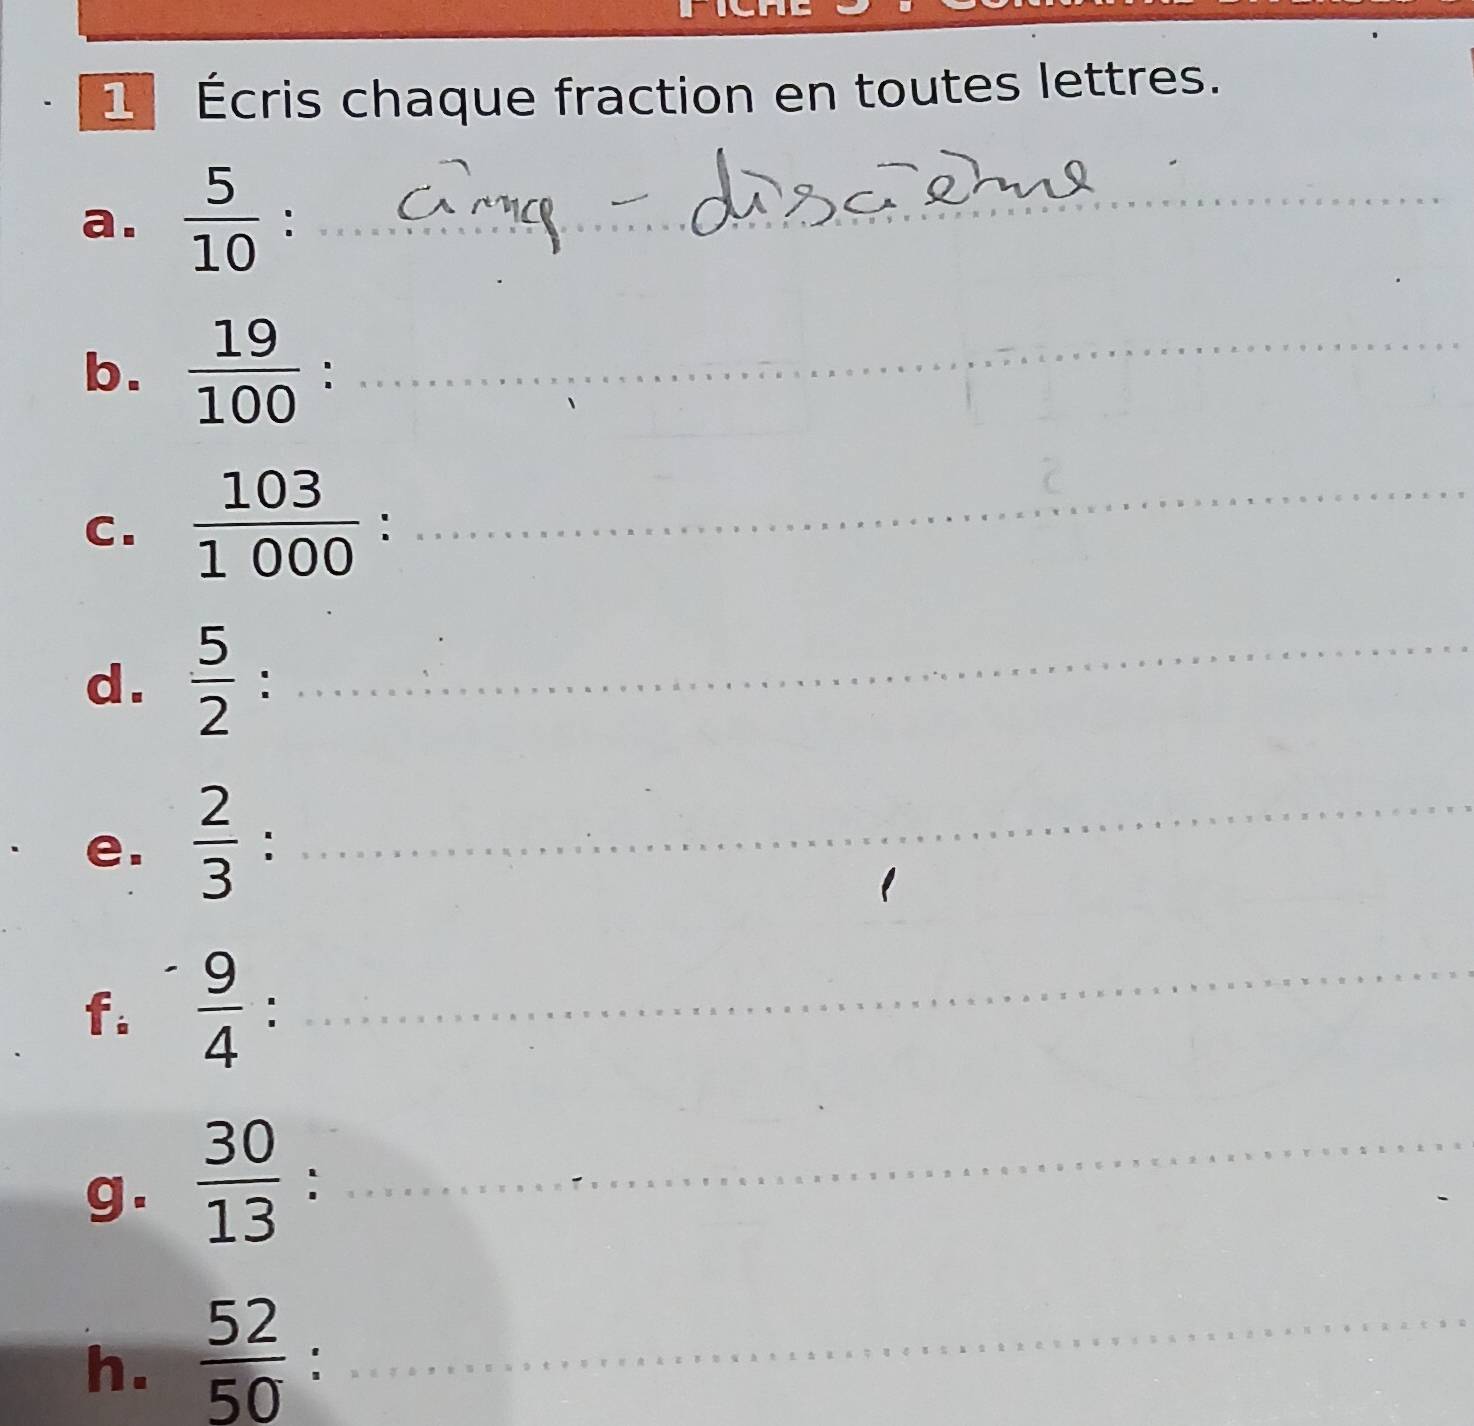 1 Écris chaque fraction en toutes lettres.
a. 5/10 : cinq - discième
b. 19/100 :
c. 103/1 000 :
d. 5/2 :
e. 2/3 :
f. 9/4 :
g. 30/13 :
h. 52/50 :